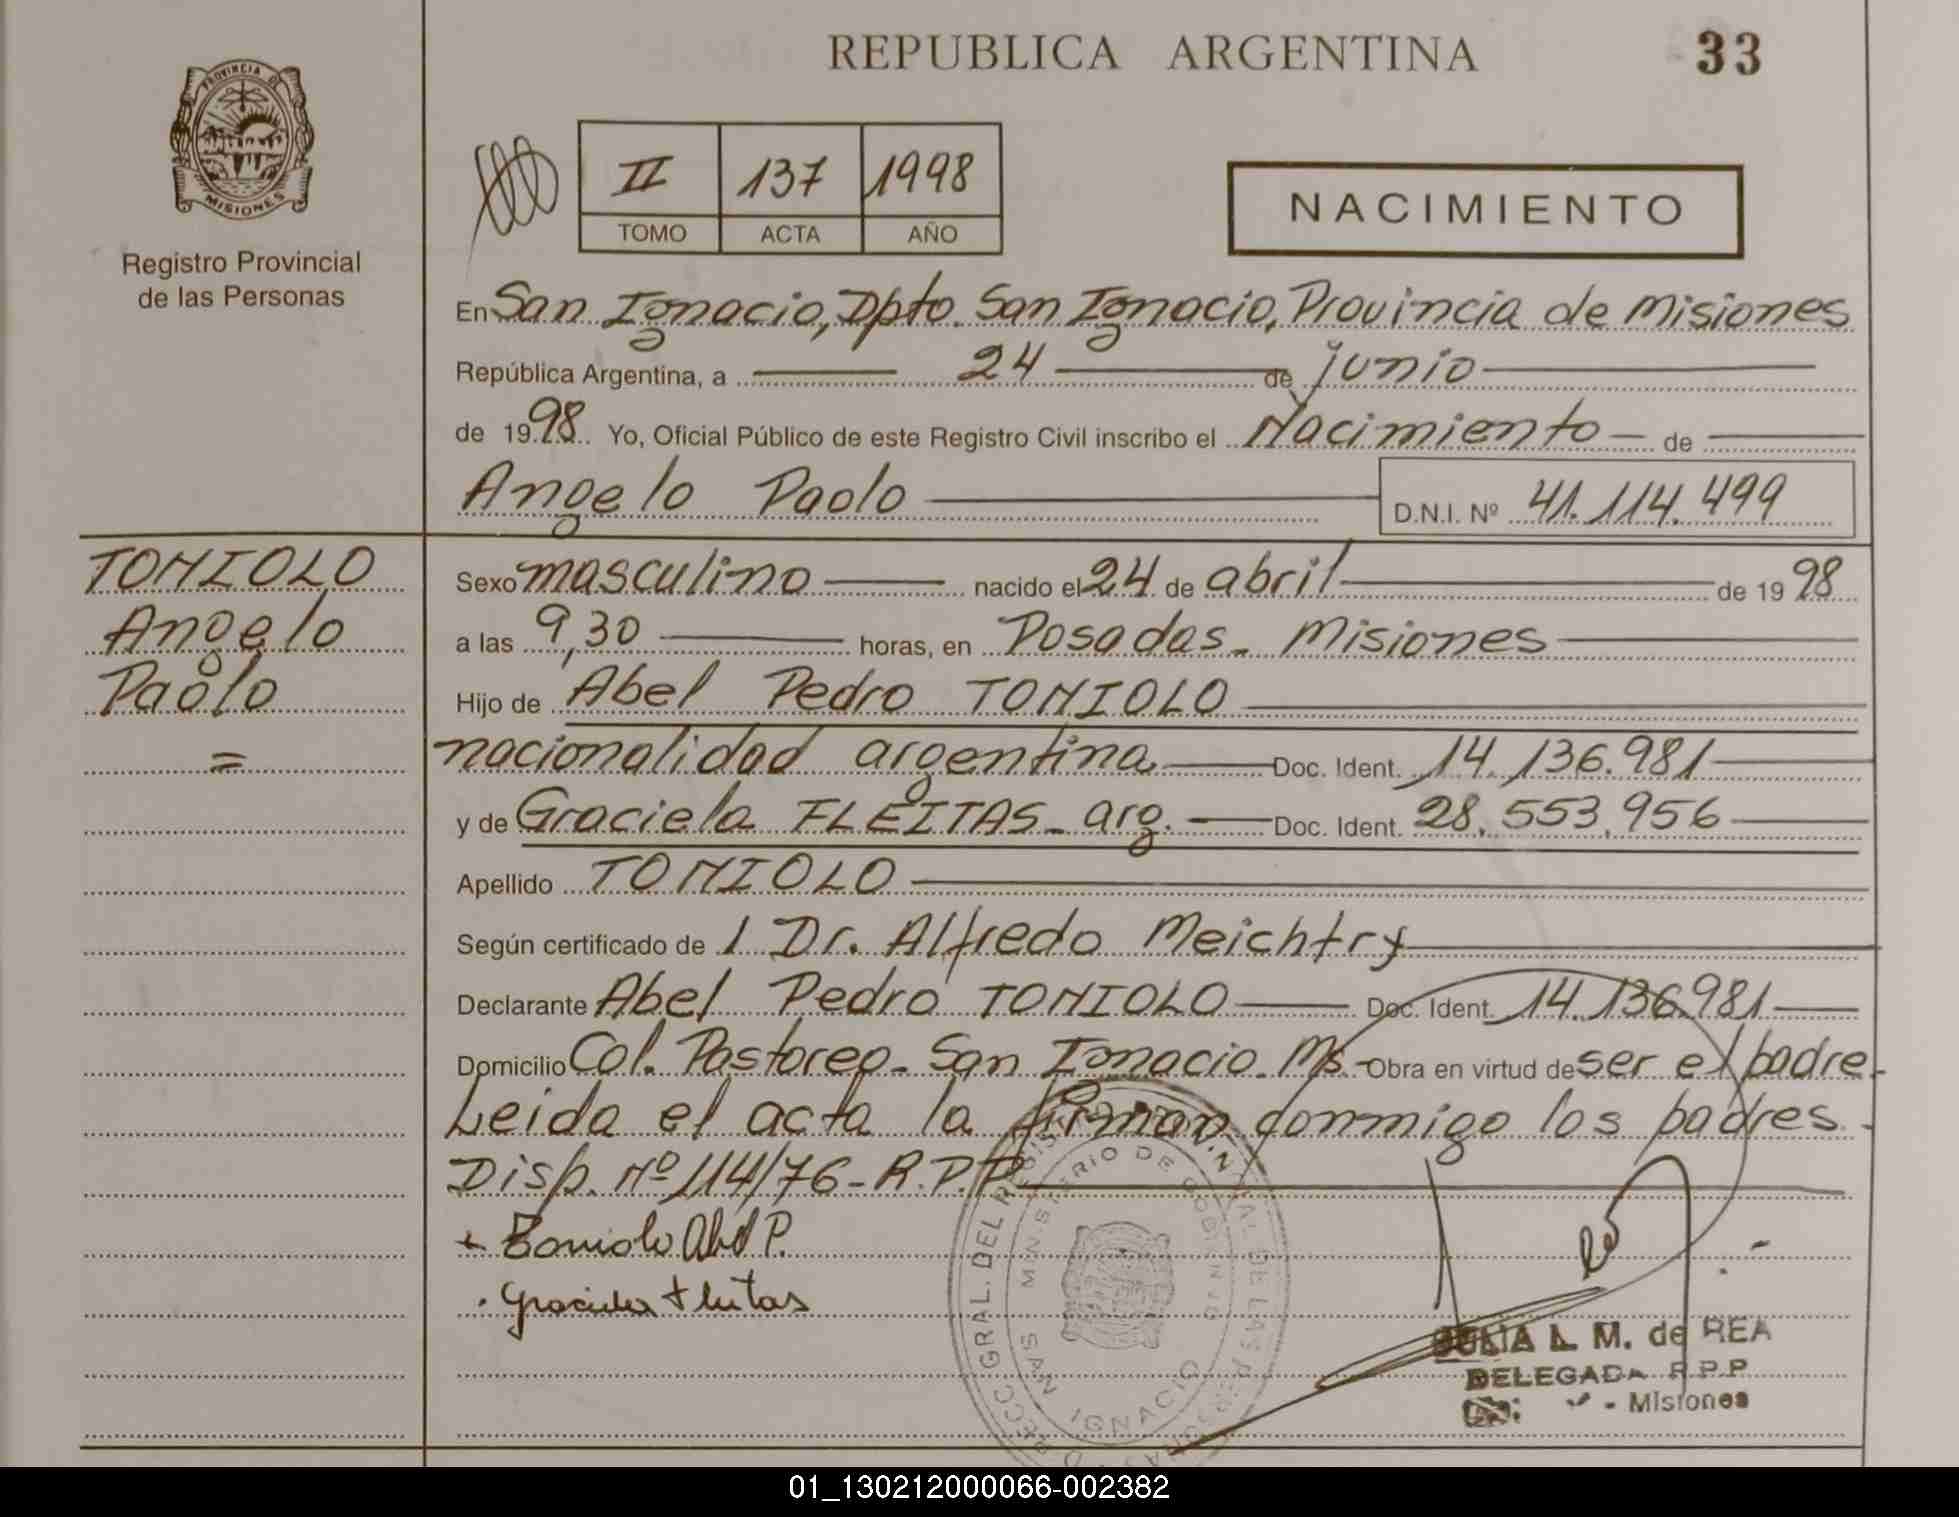 REPUBLICA ARGENTINA
33
PROVINCIA DE
MISIONES
Registro Provincial
de las Personas
II 137 1998
TOMO ACTA AÑO
NACIMIENTO
En San Ignacio, Dpto. San Ignacio, Provincia de Misiones
República Argentina, a 24 de junio
de 1998. Yo, Oficial Público de este Registro Civil inscribo el Nacimiento de
Angelo Paolo
D.N.I. Nº 41.114.499
TONIOLO
Angelo
Paolo
=
Sexo masculino nacido el 24 de abril de 1998
a las 9,30 horas, en Posadas - Misiones
Hijo de Abel Pedro TONIOLO
nacionalidad argentina Doc. Ident. 14.136.981
y de Graciela FLEITAS - arg. Doc. Ident. 28.553.956
Apellido TONIOLO
Según certificado de 1 Dr. Alfredo Meichtry
Declarante Abel Pedro TONIOLO Doc. Ident. 14.136.981
Domicilio Col. Pastoreo - San Ignacio - Ms. - Obra en virtud de ser el padre.
Leida el acta la firman conmigo los padres.
Disp. Nº 114/76 - R.P.P.
+ Toniolo Abel P.
. Graciela Fleitas
MINISTERIO DE GOBIERNO
SAN IGNACIO
JULIA L. M. de REA
DELEGADA R.P.P
- Misiones
01_130212000066-002382